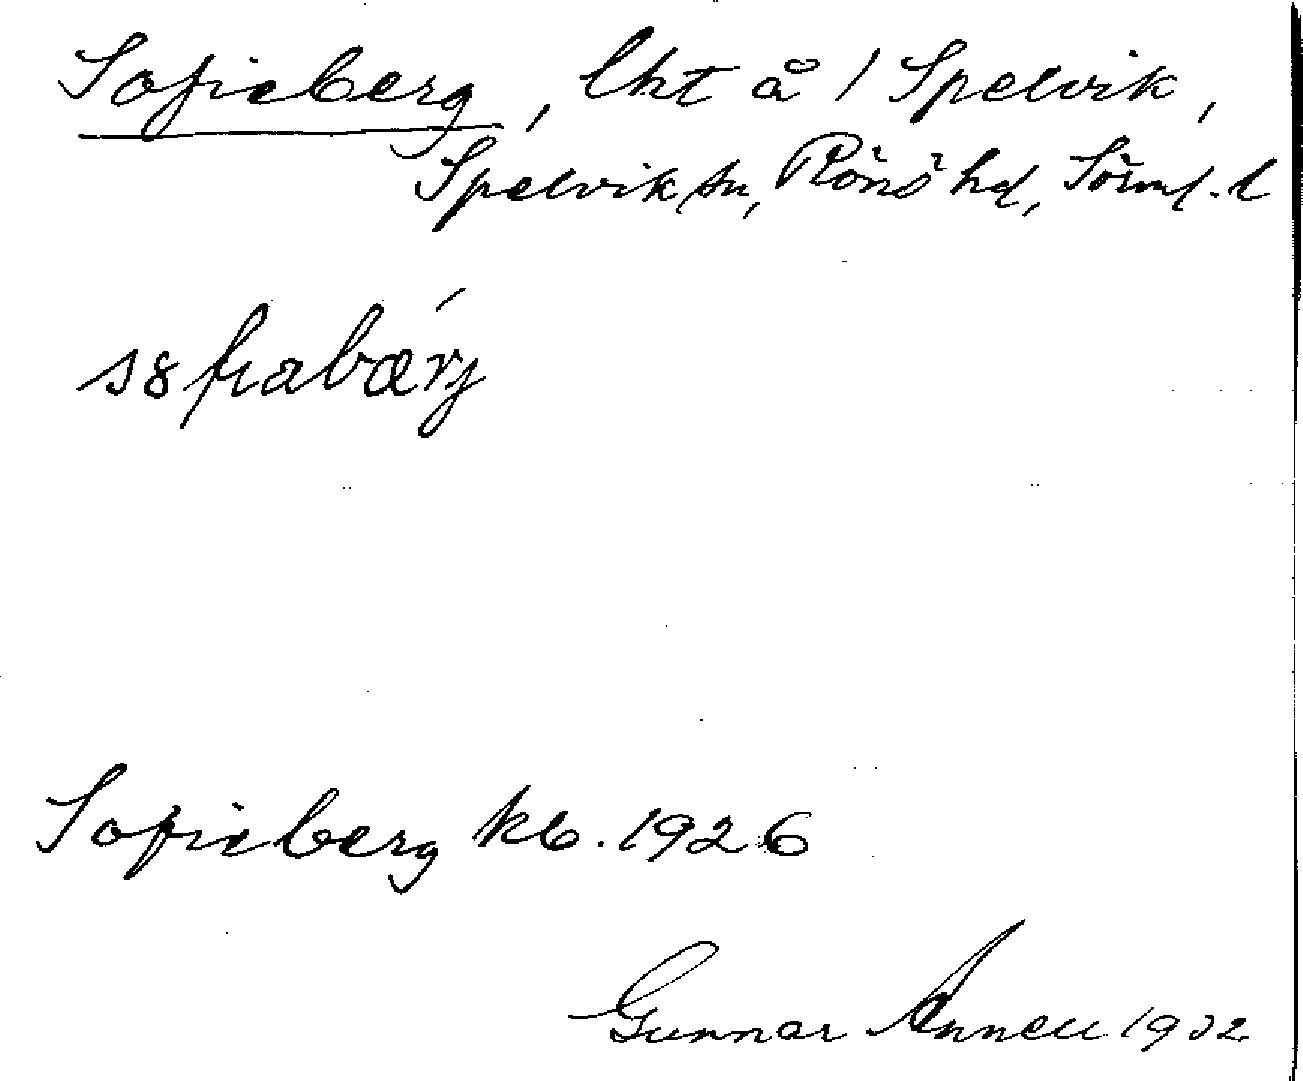 Sofieberg, lht å / Spelvik,
Spelvik sn, Rönö hd, Sörml. l
Sofieberg kb. 1926
Gunnar Annell 1932